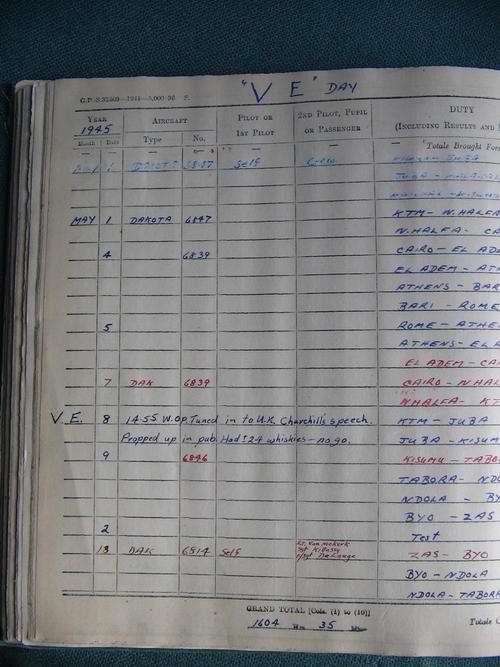 G.P.-S.31809—1944—3,000-36 S.
"V E" DAY
YEAR AIRCRAFT PILOT OR 2ND PILOT, PUPIL DUTY
1945 1ST PILOT OR PASSENGER (INCLUDING RESULTS AND
Month Date Type No.
— — — — — — Totals Brought For
Self Crew
JUBA -
MAY 1 DAKOTA 6847 KTM - N.HALFA
N.HALFA - CA
4 6839 CAIRO - EL AD
EL ADEM - ATH
ATHENS - BAR
BARI - ROME
5 ROME - ATHE
ATHENS - EL A
EL ADEM - CA
7 DAK 6839 CAIRO - N.HAL
N.HALFA - KT
V.E. 8 14.55 W.Op. Tuned in to U.K. Churchill's speech. KTM - JUBA
Propped up in pub. Had 124 whiskies - no go. JUBA - KISUM
9 6846 KISUMU - TAB
TABORA - ND
NDOLA - BY
BYO - ZAS
2 Test
13 DAK 6514 Self ZAS - BYO
BYO - NDOLA
NDOLA - TABORA
GRAND TOTAL [Cols. (1) to (10)]
1604 Hrs. 35 Totals C